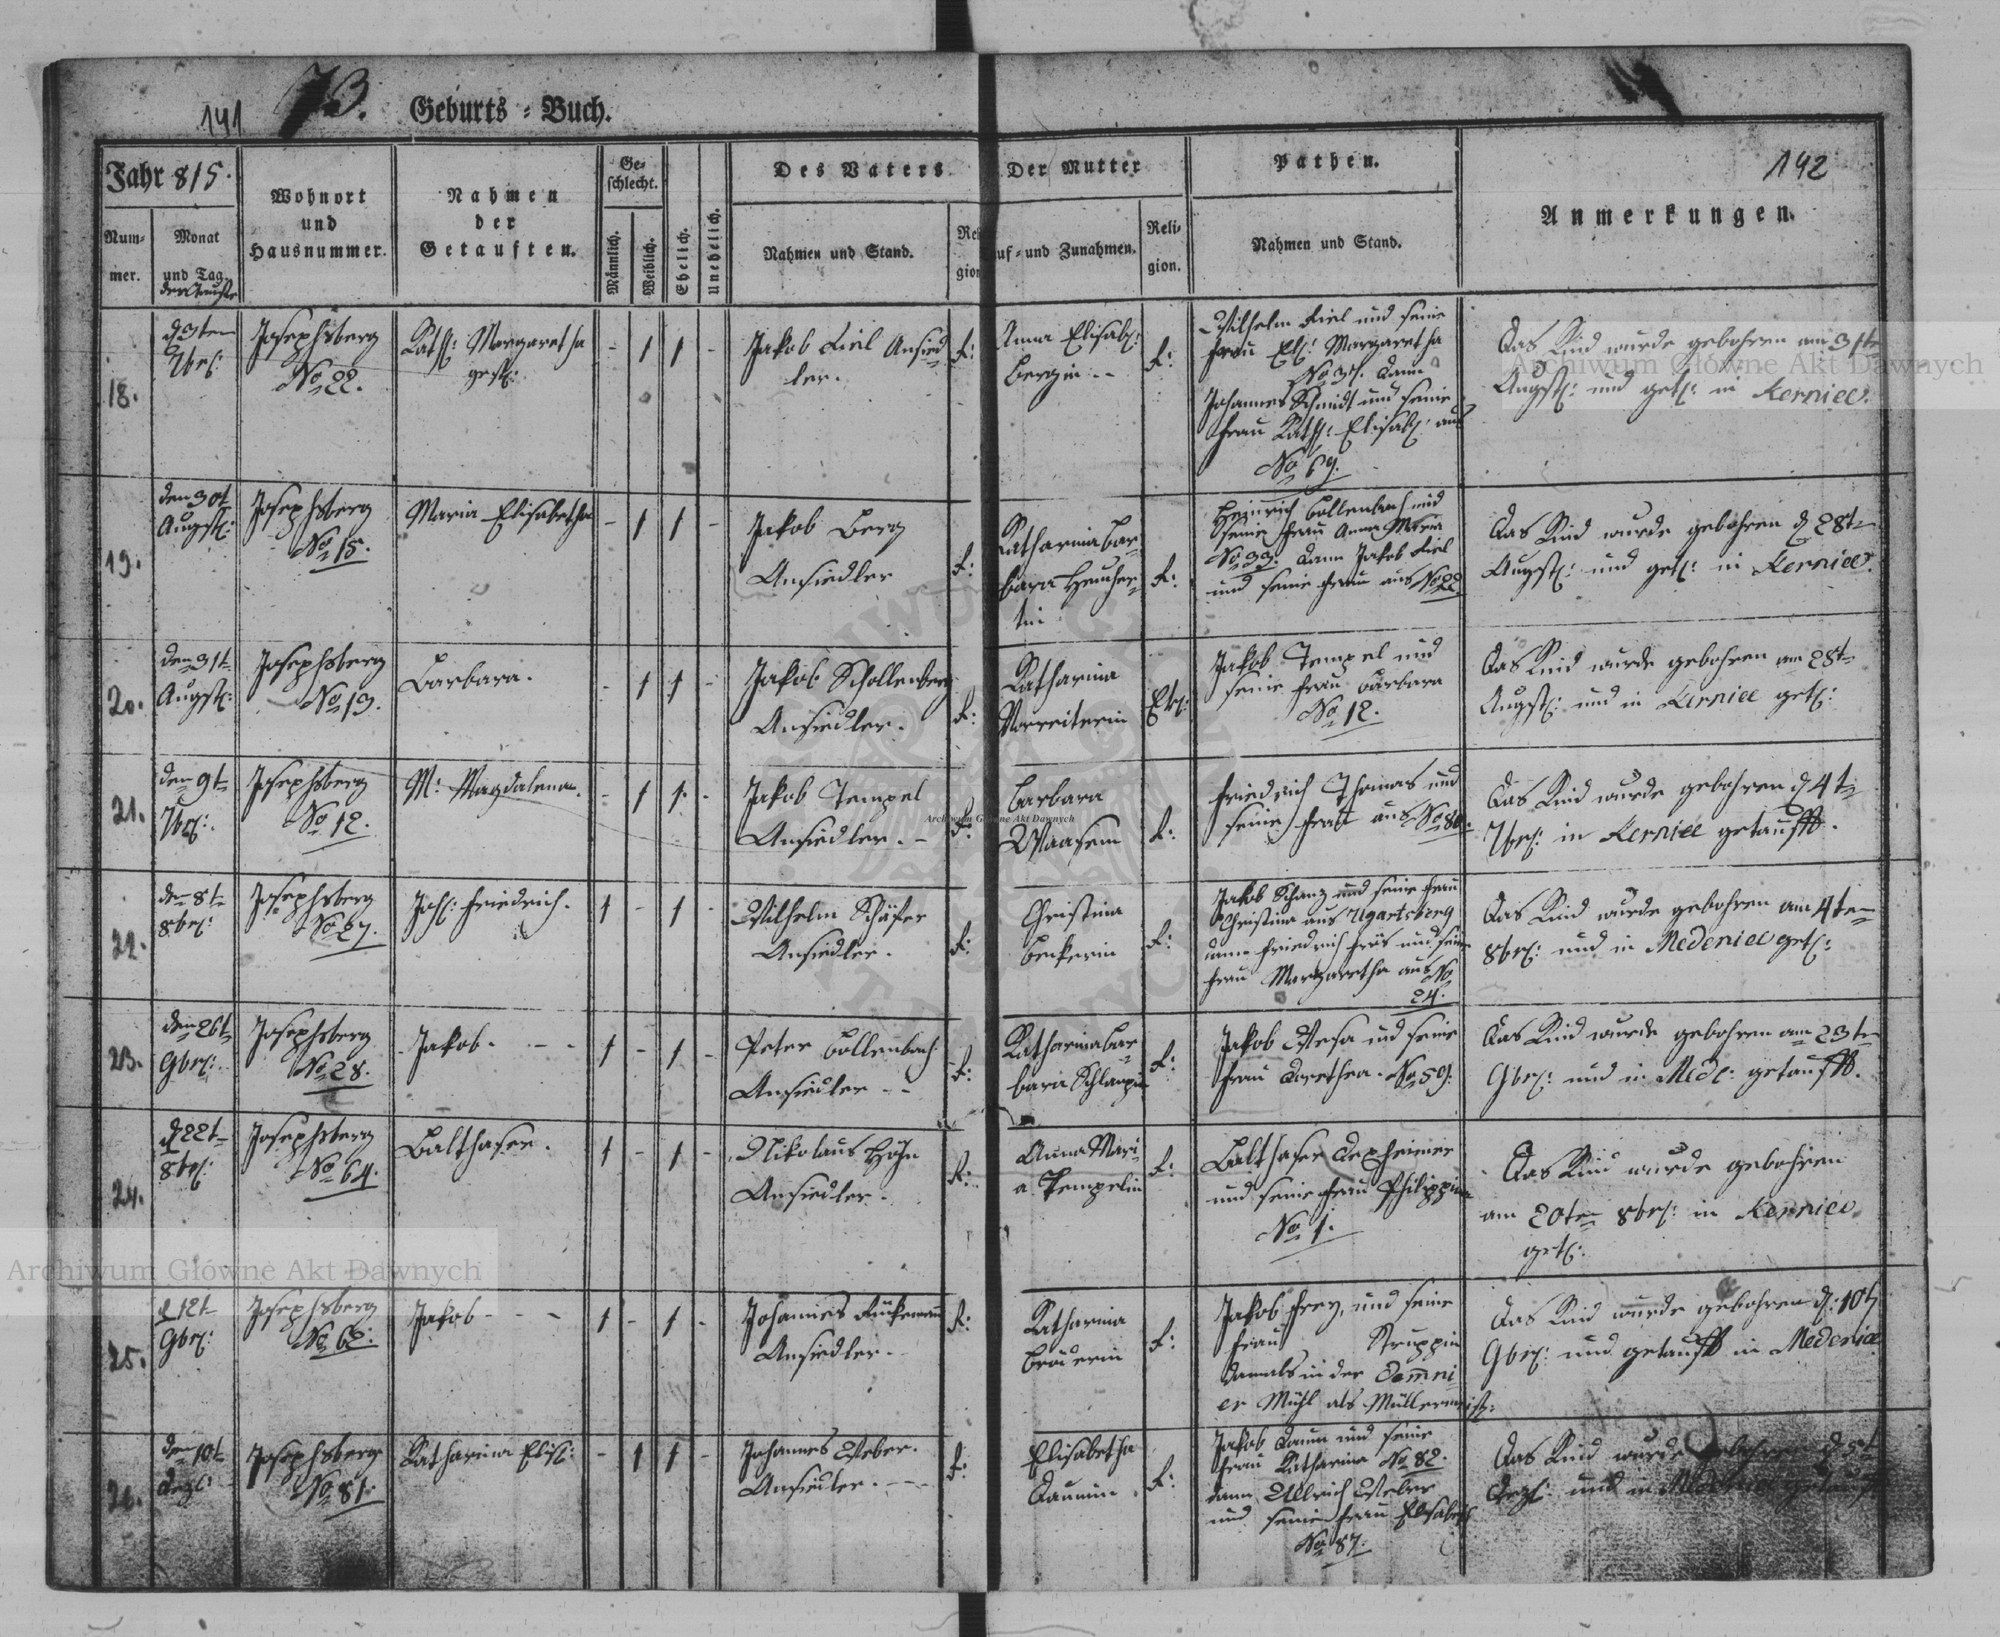 141
73. Geburts-Buch.
Jahr 815.
Num-
mer.
Monat
und Tag
der Taufe
Wohnort
und
Hausnummer.
Nahmen
der
Getauften.
Ge-
schlecht.
Männlich.
Weiblich.
Ehelich.
Unehelich.
Des Vaters
Nahmen und Stand.
Re
gion
Der Mutter
uf- und Zunahmen.
Reli-
gion.
Pathen.
Nahmen und Stand.
142
Anmerkungen.
18.
d 3ten
7br:
Josephsberg
No 22.
Kath: Margaretha
- 1 1 -
Jakob Ansied
ler.
R:
Anna Elisab:
Bergin
R:
Wilhelm und seine
Frau El: Margaretha
No 37. dann
Johannes Schmidt und seine
Frau Kath: Elisab: aus
No 69.
Das Kind wurde gebohren am 31t
Augst: und get: in Kerniec.
19.
den 30t
Augst:
Josephsberg
No 15.
Maria Elisabetha
- 1 1 -
Jakob Berg
Ansiedler
R:
Katharina Bar-
bara
R:
Heinrich Bollenbach und
seine Frau Anna Maria
No 33. dann Jakob
und seine Frau aus No 22.
Das Kind wurde gebohren d 28t
Augst: und get: in Kerniec.
20.
den 31t
Augst:
Josephsberg
No 19.
Barbara.
- 1 1 -
Jakob Schollenberg
Ansiedler.
R:
Katharina
Jakob Tempel und
seine Frau Barbara
No 12.
Das Kind wurde gebohren am 28t
Augst: und in Kerniec get:
21.
den 9t
7br:
Josephsberg
No 12.
M: Magdalena.
- 1 1 -
Jakob Tempel
Ansiedler.
R:
Barbara
Waasem
R:
Friedrich Thomas und
seine Frau aus No 80.
Das Kind wurde gebohren d 4t
7br: in Kerniec getaufft.
22.
den 8t
8br:
Josephsberg
No 27.
Joh: Friedrich.
1 - 1 -
Wilhelm Schäfer
Ansiedler.
R:
Christina
Bekerin
R:
Jakob Schanz und seine Frau
Christina aus Ugartsberg
dann Friedrich und seine
Frau Margaretha aus No
24.
Das Kind wurde gebohren am 4ten
8br: und in Medeniec get:
23.
den 26t
9br:
Josephsberg
No 28.
Jakob.
1 - 1 -
Peter Bollenbach
Ansiedler
R:
Katharina Bar-
bara
R:
Jakob und seine
Frau Dorethea. No 59.
Das Kind wurde gebohren am 23t
9br: und in Med: getaufft.
24.
d 22t
8br:
Josephsberg
No 64.
Balthaser.
1 - 1 -
Nikolaus Höhn
Ansiedler.
R:
Anna Mari-
a Tempelin
R:
Balthaser Dexheimer
und seine Frau Philippina
No 1.
Das Kind wurde gebohren
am 20ten 8br: in Kerniec
get:
25.
d 12t
9br:
Josephsberg
No 62.
Jakob
1 - 1 -
Johannes
Ansiedler.
R:
Katharina
Braderin
R:
Jakob Frey, und seine
Frau Kruppin
damals in der
er Mühl als
Das Kind wurde gebohren d: 10t
9br: und getaufft in Medenice
26.
den 10t
Dez:
Josephsberg
No 81.
Katharina Elis:
- 1 1 -
Johannes Weber.
Ansiedler.
R:
Elisabetha
Daumin
R:
Jakob Daum und seine
Frau Katharina No 82.
dann Ullrich Weber
und seine Frau Elisabeth
No 87.
Das Kind wurde gebohren
Dez: und in
Archiwum Główne Akt Dawnych
Archiwum Główne Akt Dawnych
Archiwum Główne Akt Dawnych